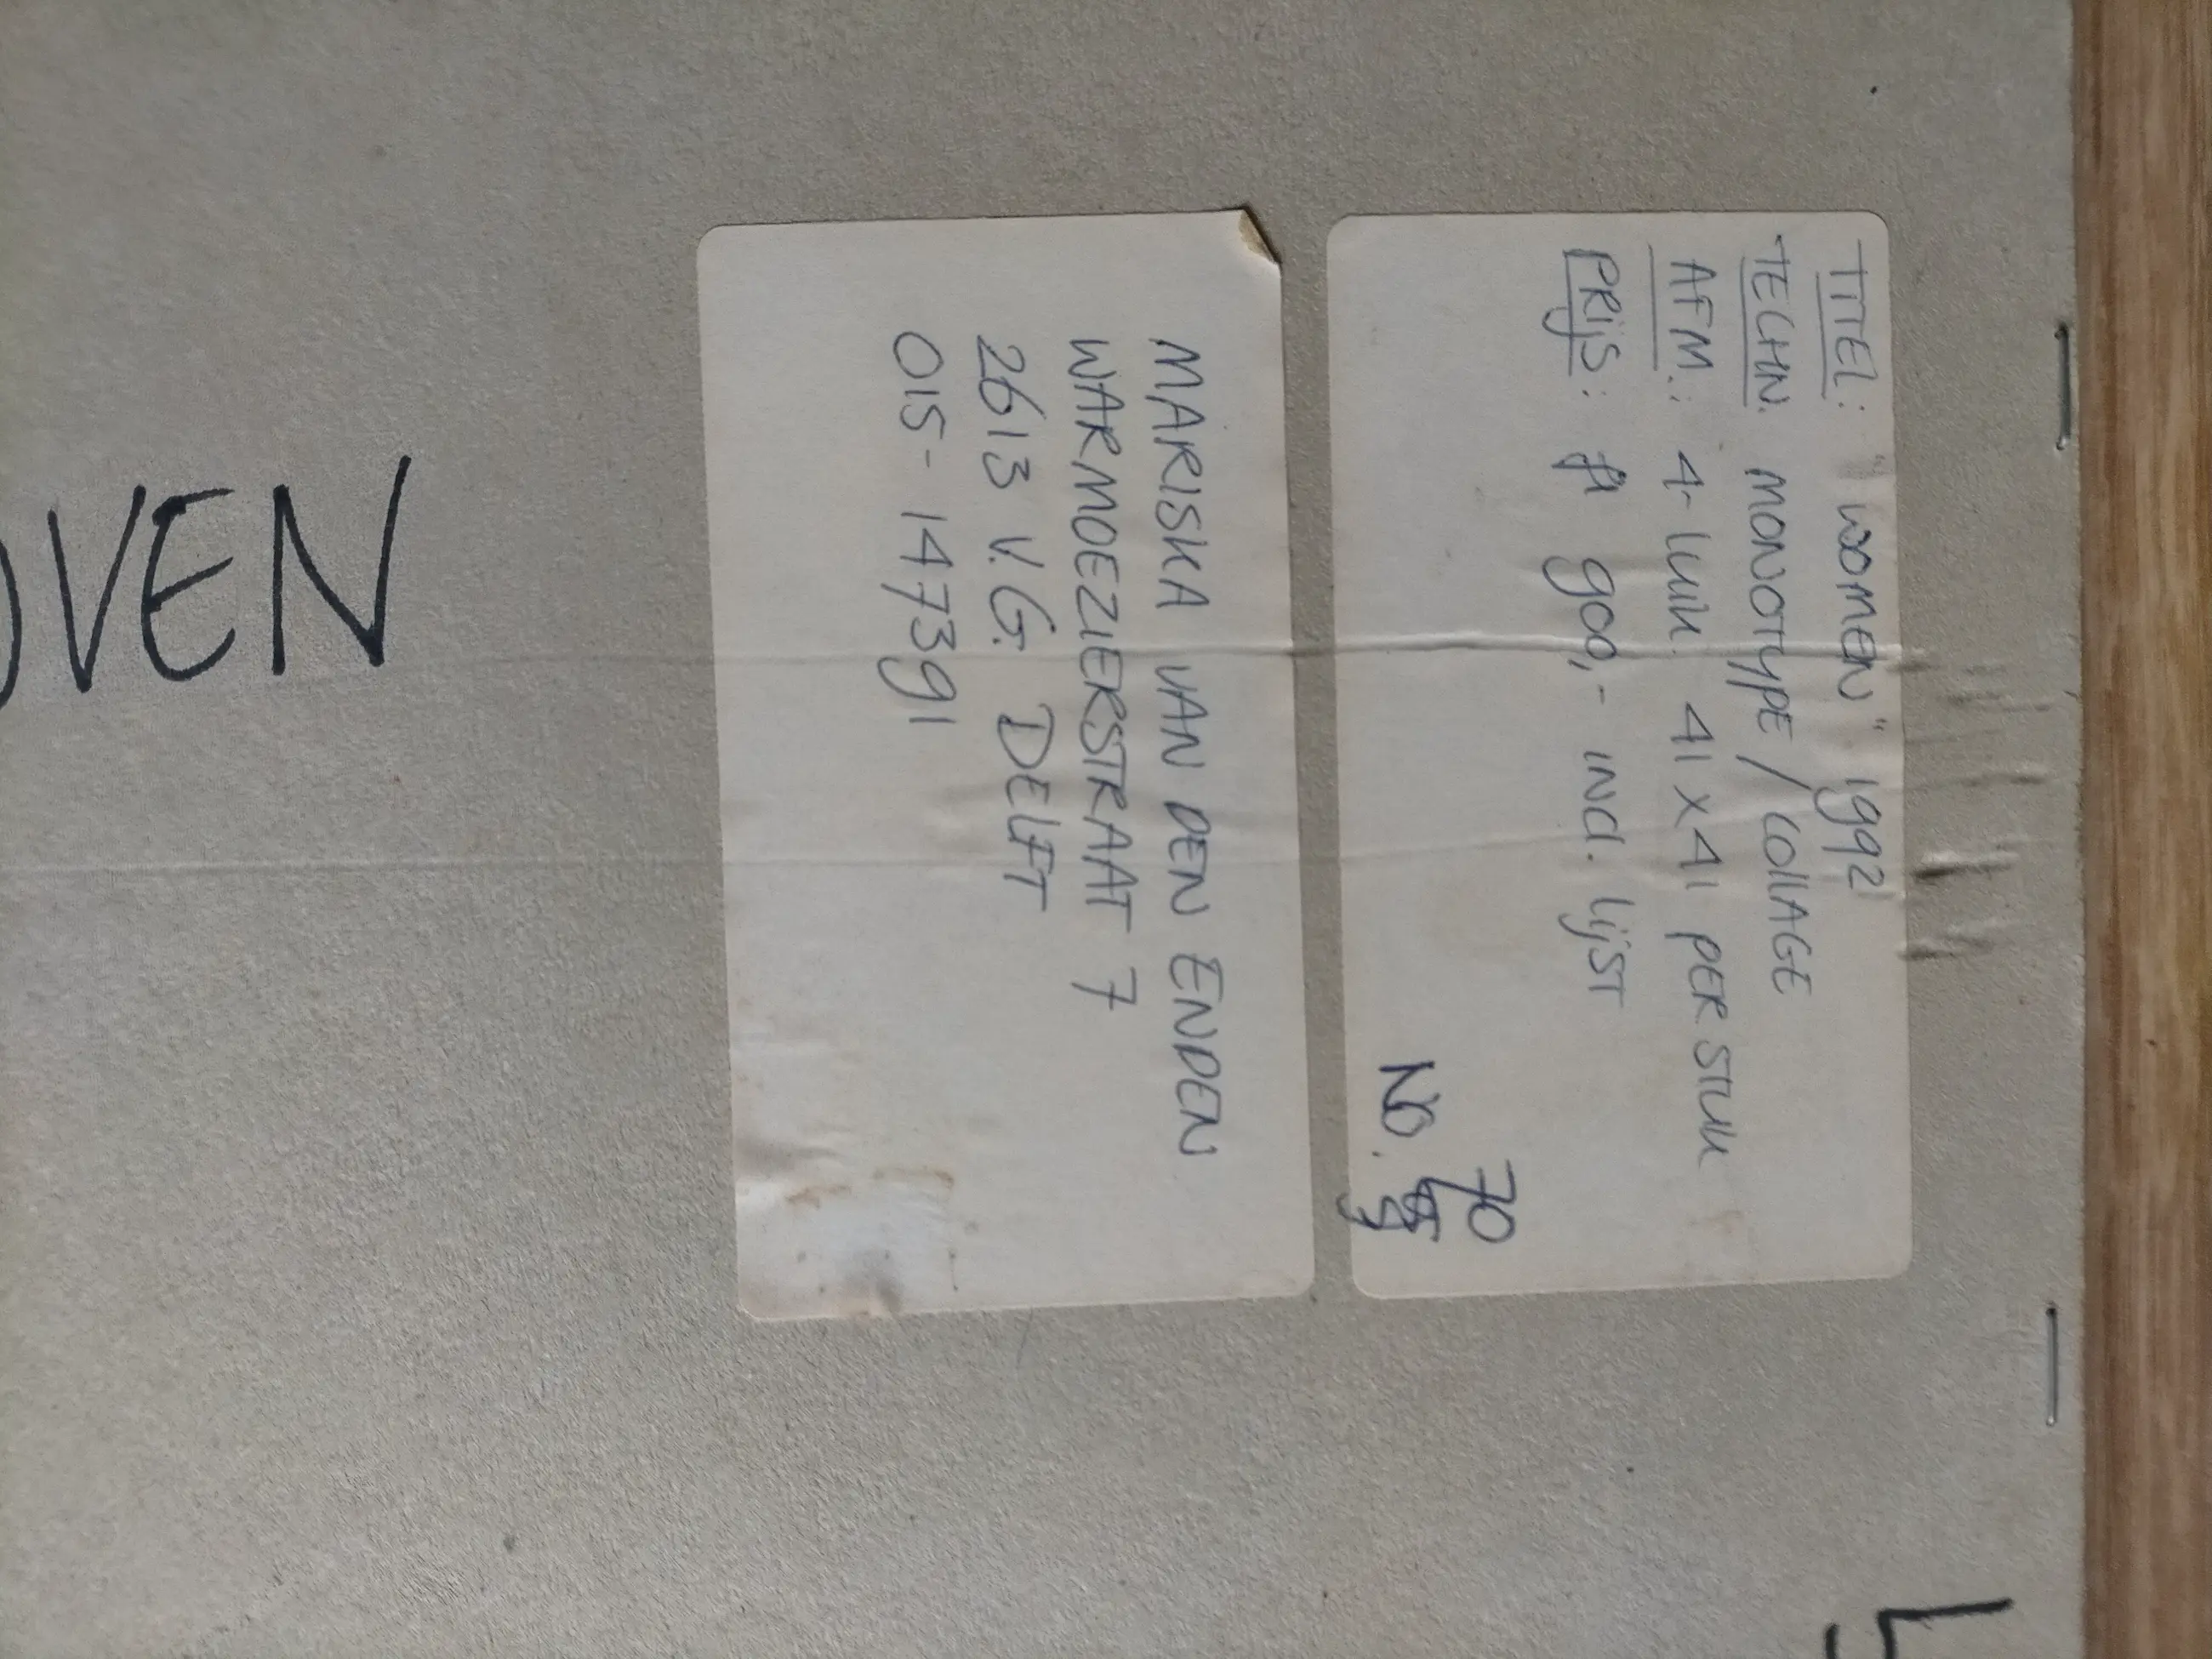 TITEL: "WOMEN" 1992
TECHN. MONOTYPE / COLLAGE
AFM.: 4-luik 41 x 41 PER STUK
PRIJS: fl 900,- incl. lijst
70
NO.
MARISKA VAN DEN ENDEN
WARMOEZIERSTRAAT 7
2613 V.G. DELFT
015-147391
OVEN